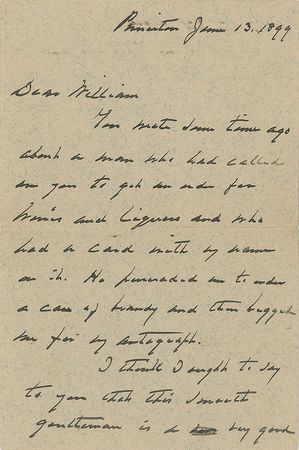 Princeton June 13, 1899
Dear William
You wrote some time ago
about a man who had called
on you to get an order for
Wines and Liquors and who
had a card with my name
on it. He persuaded me to order
a case of brandy and then begged
me for my autograph.
I think I ought to say
to you that this smooth
gentleman is a very good